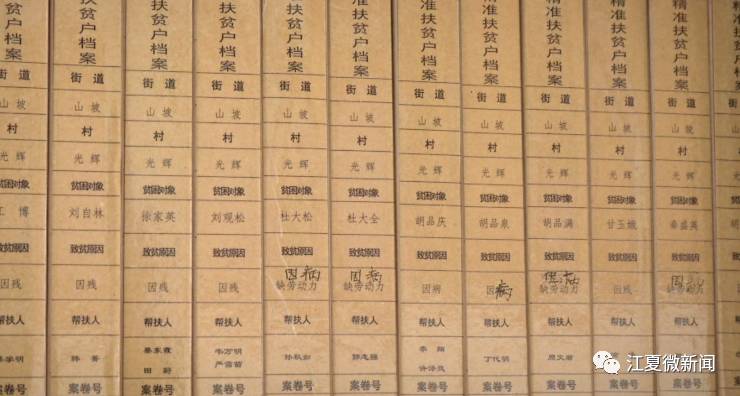 户档案
扶贫户档案
街道
山坡
村
光辉
贫困对象
刘自林
致贫原因
因残
帮扶人
案卷号
扶贫户档案
街道
山坡
村
光辉
贫困对象
徐家英
致贫原因
因残
帮扶人
案卷号
扶贫户档案
街道
山坡
村
光辉
贫困对象
刘观松
致贫原因
因残
帮扶人
韦万明
案卷号
扶贫户档案
街道
山坡
村
光辉
贫困对象
杜大松
致贫原因
因病
缺劳动力
帮扶人
案卷号
准扶贫户档案
街道
山坡
村
光辉
贫困对象
杜大全
致贫原因
因病
缺劳动力
帮扶人
案卷号
准扶贫户档案
街道
山坡
村
光辉
贫困对象
胡品庆
致贫原因
因病
帮扶人
李翔
案卷号
准扶贫户档案
街道
山坡
村
光辉
贫困对象
胡品泉
致贫原因
因病
帮扶人
丁代明
案卷号
精准扶贫户档案
街道
山坡
村
光辉
贫困对象
胡品满
致贫原因
缺劳动力
帮扶人
案卷号
精准扶贫户档案
街道
山坡
村
光辉
贫困对象
甘玉娥
致贫原因
因残
帮扶人
案卷号
精准扶贫户档案
街道
山坡
村
光辉
贫困对象
秦盛英
致贫原因
缺劳动力
帮扶人
案卷号
江夏微新闻